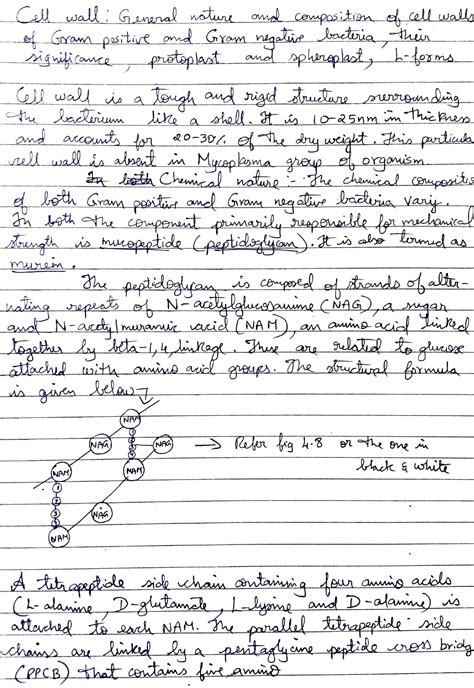 Cell wall : General nature and composition of cell walls
of Gram positive and Gram negative bacteria, their
significance, protoplast and spheroplast, L-forms
Cell wall is a tough and rigid structure surrounding
the bacterium like a shell. It is 10-25nm in thickness
and accounts for 20-30% of the dry weight. This particular
cell wall is absent in Mycoplasma group of organism.
In both Chemical nature :- The chemical composition
of both Gram positive and Gram negative bacteria vary.
In both the component primarily responsible for mechanical
strength is mucopeptide (peptidoglycan). It is also termed as
murein.
The peptidoglycan is composed of strands of alter-
nating repeats of N-acetylglucosamine (NAG), a sugar
and N-acetylmuramic acid (NAM), an amino acid linked
together by beta-1,4, linkage. These are related to glucose
attached with amino acid groups. The structural formula
is given below
NAM
NAG
NAG
→ Refer fig 4.8 or the one in
black & white
NAM
NAM
NAG
NAM
A tetrapeptide side chain containing four amino acids
(L-alanine, D-glutamate, L-lysine and D-alanine) is
attached to each NAM. The parallel tetrapeptide side
chains are linked by a pentaglycine peptide cross bridg
(PPCB) that contains five amino